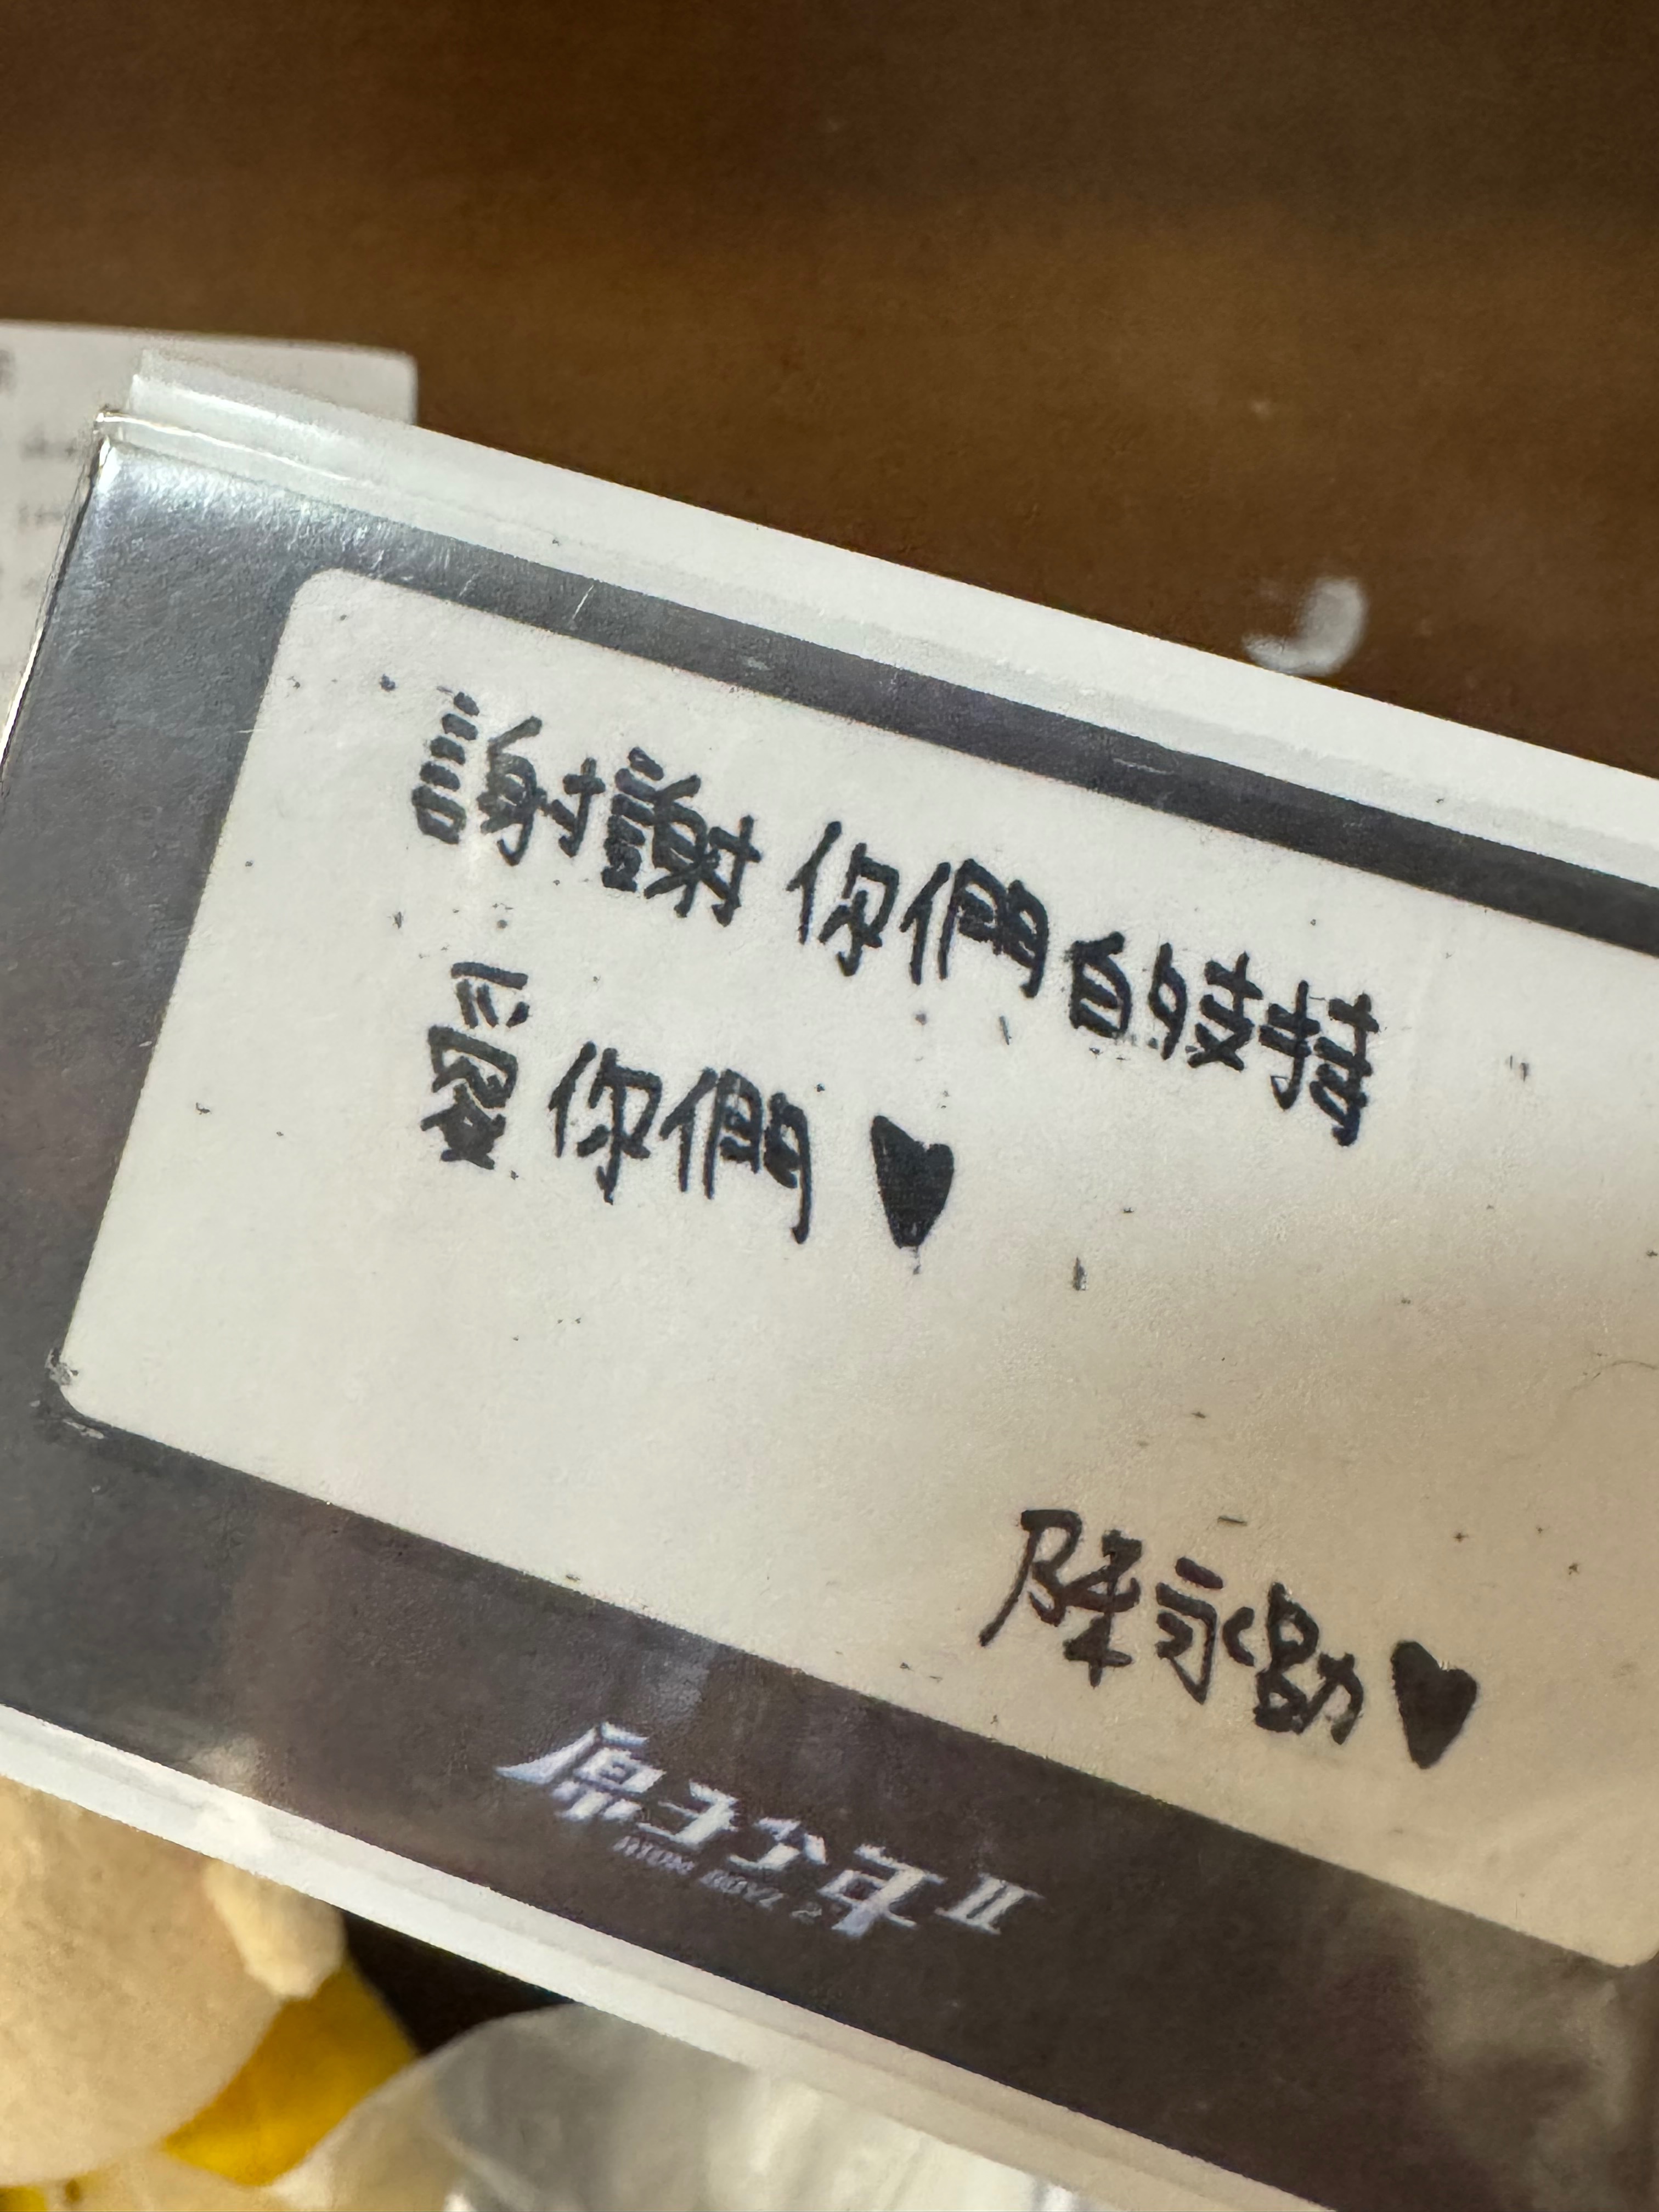 謝謝你們的支持
愛你們♥
陳永勛♥
原子少年II
ATOM BOYZ 2